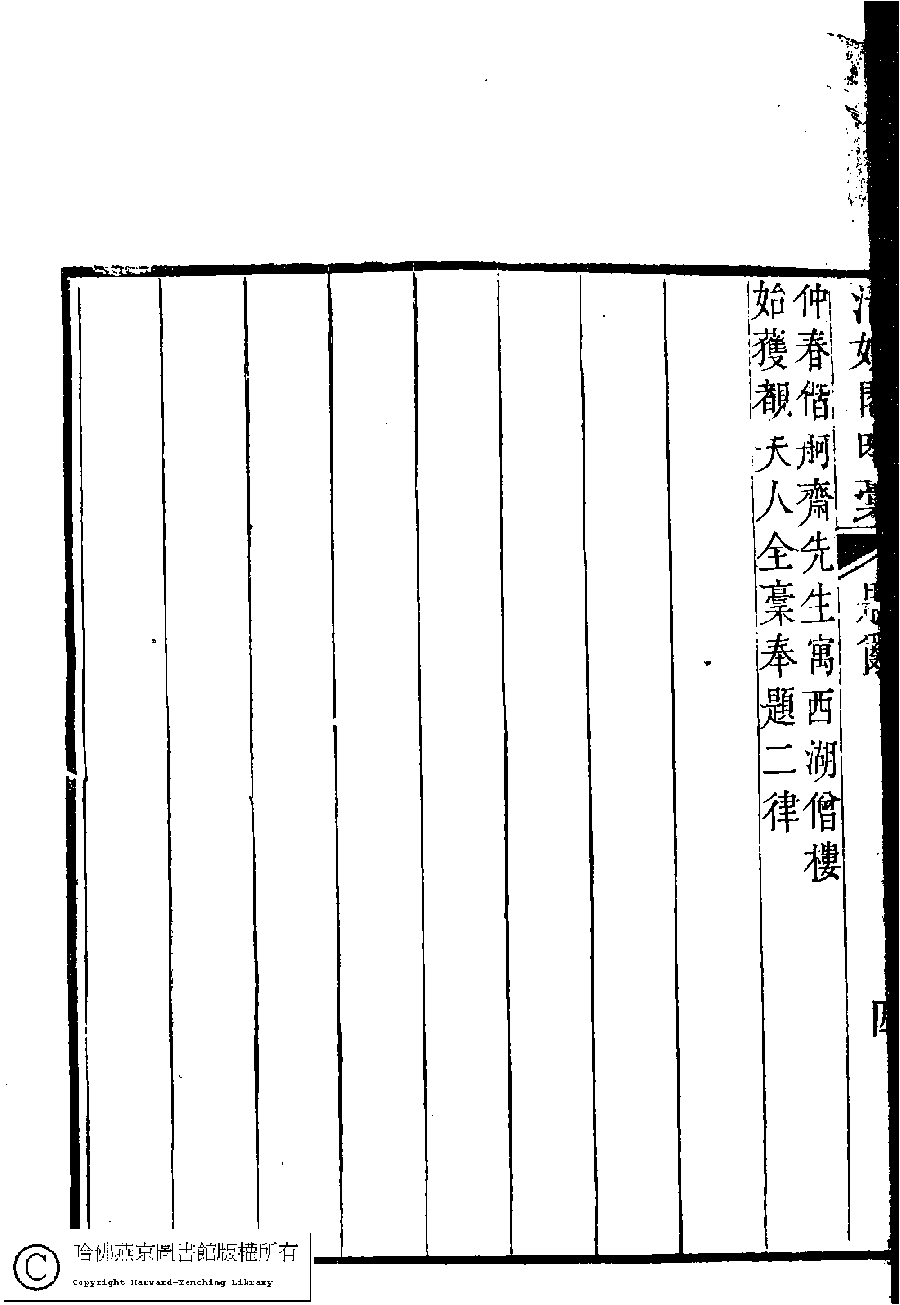 仲春偕舸齋先生寓西湖僧樓
始獲覩天人全藁奉題二律
哈佛燕京圖書館版權所有
Copyright Harvard-Yenching Library